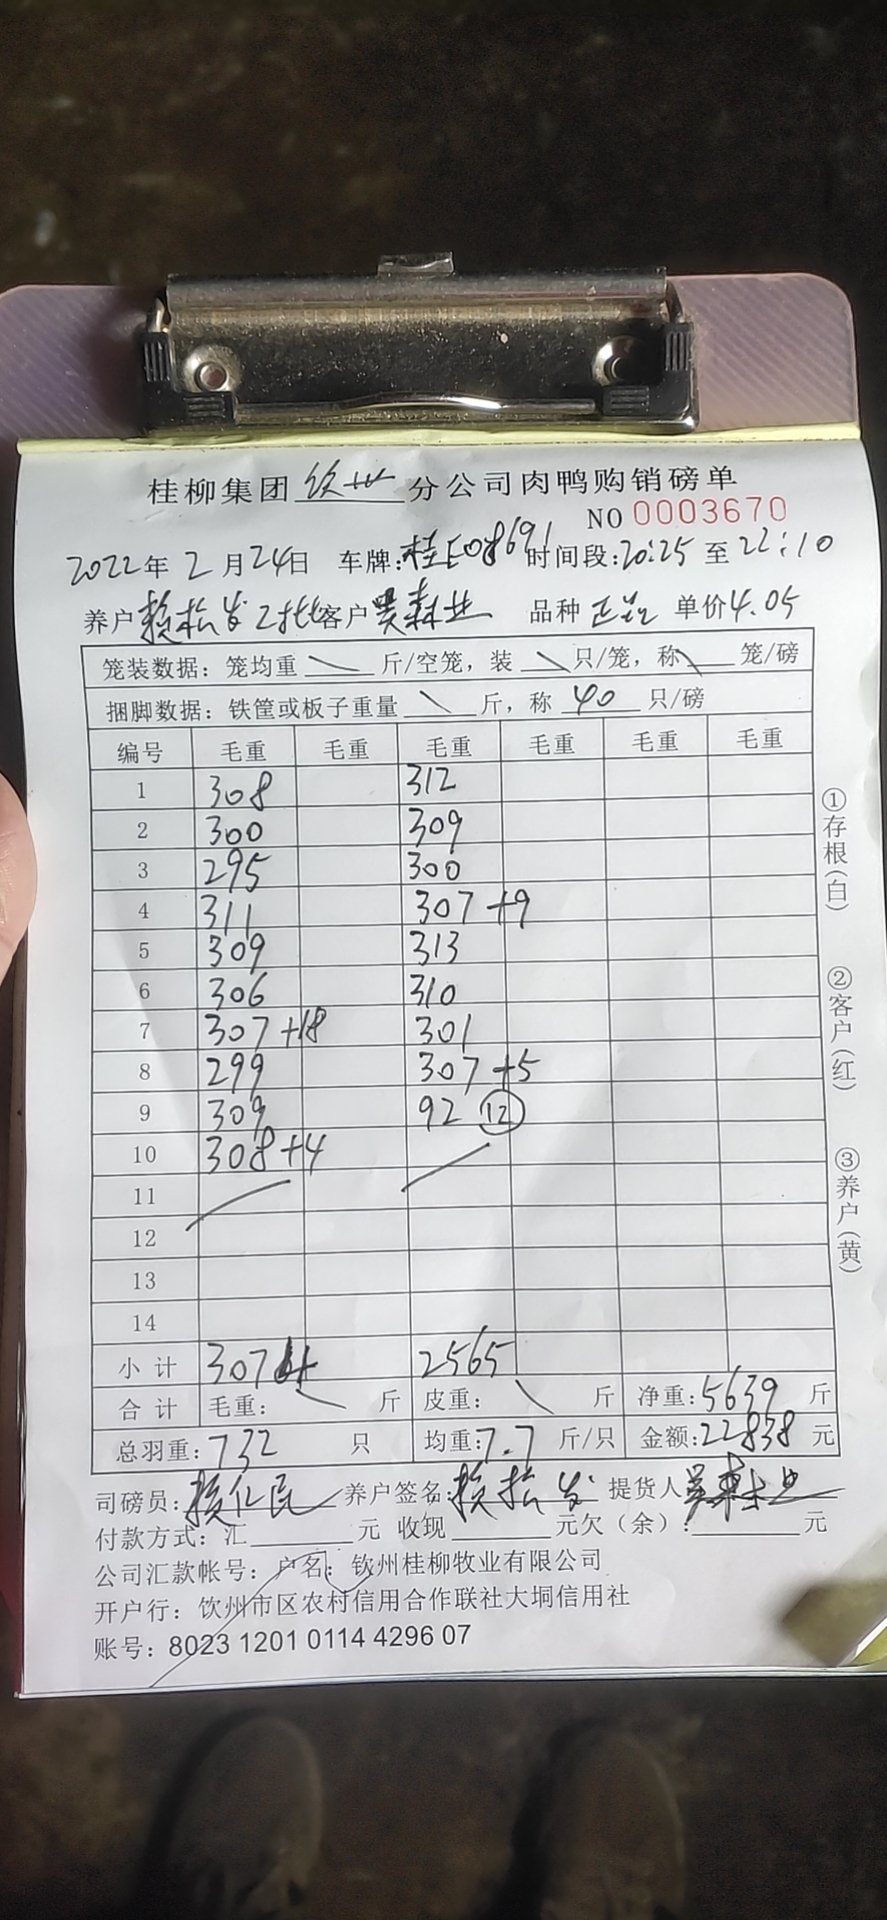 桂柳集团 钦州 分公司肉鸭购销磅单
NO 0003670
2022年 2 月 24日 车牌:桂E08691 时间段:20:25 至 22:10
养户 赖松发2批 客户 吴森业 品种 单价 4.05
笼装数据：笼均重 \ 斤/空笼，装 \ 只/笼，称 \ 笼/磅
捆脚数据：铁筐或板子重量 \ 斤，称 40 只/磅
编号 毛重 毛重 毛重 毛重 毛重 毛重
1 308 312
2 300 309
3 295 300
4 311 307 +9
5 309 313
6 306 310
7 307 +18 301
8 299 307 +5
9 309 92 ⑫
10 308 +4
11
12
13
14
小 计 3074 2565
合 计 毛重： \ 斤 皮重： \ 斤 净重：5639 斤
总羽重：732 只 均重：7.7 斤/只 金额：22838 元
司磅员：赖仁民 养户签名：赖松发 提货人 吴森业
付款方式：汇 元 收现 元欠（余）： 元
公司汇款帐号：户名：钦州桂柳牧业有限公司
开户行：饮州市区农村信用合作联社大垌信用社
账号：8023 1201 0114 4296 07
①存根(白)
②客户(红)
③养户(黄)